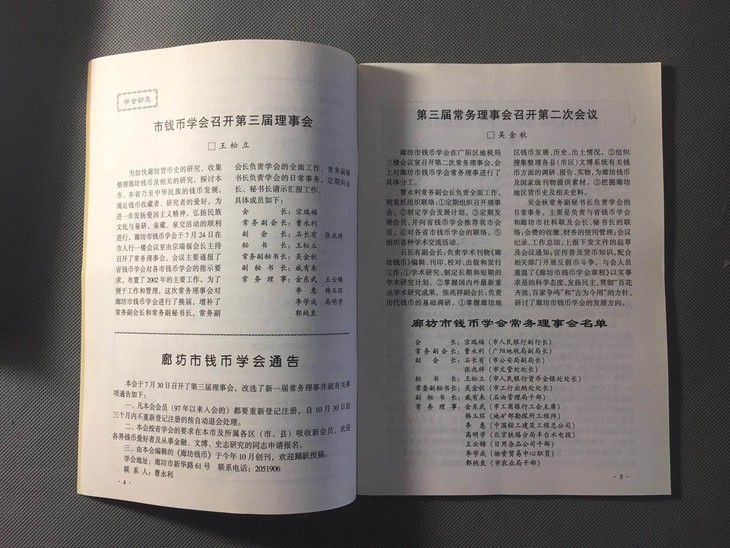 学会动态
市钱币学会召开第三届理事会
□王松立
为加快廊坊货币史的研究,收集
整理廊坊钱币及相关的研究,探讨本
市、本省乃至中华民族的钱币发展,
满足钱币收藏者、研究者的爱好,为
进一步发扬爱国主义精神,弘扬民族
文化与泉研、泉藏、泉交活动的顺利
进行,廊坊市钱币学会于7月24日在
市人行一楼会议室由宗瑞福会长主持
召开了常务理事会。会议主要通报了
省钱币学会对各市钱币学会的指示要
求,布置了2002年的主要工作。为了
便于工作和管理,这次常务理事会对
廊坊市钱币学会进行了换届,增补了
常务副会长和常务副秘书长,常务副
会长负责学会的全面工作,常务副秘
书长负责学会的日常事务,定期向会
长、秘书长请示汇报工作。
具体成员如下:
会长:宗瑞福
常务副会长:曹永利
副会长:石长有 张兆祥
秘书长:王松立
常务副秘书长:吴金秋
副秘书长:威有未
常务理事:金东武 王士锦
李惠 韩玉红
李学成 高明学
郭纯良
廊坊市钱币学会通告
本会于7月30日召开了第三届理事会,改选了新一届常务理事并就有关事
项通告如下:
一、凡本会会员(97年以来入会的)都要重新登记注册,自10月30日起
三个月内不重新登记注册的按自动退会处理。
二、本会按省学会的要求在本市及所属各区(市、县)吸收新会员,欢迎
各界钱币爱好者及从事金融、文博、史志研究的同志申请报名。
三、由本会编辑的《廊坊钱币》于今年10月创刊,欢迎踊跃投稿。
学会地址:廊坊市新华路61号 联系电话:2051906
联系人:曹永利
·4·
第三届常务理事会召开第二次会议
□吴金秋
廊坊市钱币学会在广阳区地税局
三楼会议室召开第二次常务理事会,会
上对廊坊市钱币学会常务理事进行了
具体分工。
曹永利常务副会长负责全面工作,
侧重抓组织联络:①定期组织召开理事
会。②制定学会发展计划。③定期发
措会员,并向省钱币学会推荐我市会
员。④对各省市钱币学会的联络。⑤
组织各种学术交流活动。
石长有副会长:负责学术刊物《廊坊
钱币》编辑、刊印、校对、出版和发行
工作:①学术研究,制定长期和短期的
学术研究计划。②掌握国内外最新重
点学术研究成果。张兆祥副会长:负责
历代钱币的基础调研。①掌握廊坊地
区钱币发展、历史、出土情况。②组织
搜集整理各县(市区)文博系统有关钱
币方面的调研、报告、实物,为廊坊钱币
及国家级刊物提供素材。③挖掘廊坊
地区货币史及相关史料。
吴金秋常务副秘书长负责学会的
日常事务。主要是负责与省钱币学会
和廊坊市社科联及会长、秘书长的联
络;会费的收缴、财务的使用管理;会议
纪录、工作总结,上报下发文件的起草
及会议通知;宣传普及货币知识,配合
相关部门开展反假币斗争。与会人员
重温了《廊坊市钱币学会章程》以实事
求是的科学态度,发扬民主,贯彻“百花
齐放,百家争鸣”和“古为今用”的方针,
研讨了廊坊市钱币学会的发展方向。
廊坊市钱币学会常务理事会名单
会长:宗瑞福(市人民银行副行长)
常务副会长:曹永利(广阳地税局副局长)
副会长:石长有(市公安局副局长)
张兆祥(市文管处处长)
秘书长:王松立(市人民银行货币金银处处长)
常委副秘书长:吴金秋(市工行出纳处处长)
副秘书长:威有未(石油管理局干部)
常务理事:金东武(市工商银行工会主席)
韩玉红(地矿部勘探所工程师)
李惠(中国轻工建筑工程总公司)
高明学(北京铁路分局丰台水电段)
王士锦(日用杂品公司干部)
李学成(物资贸易中心职员)
郭纯良(市农业局干部)
·5·